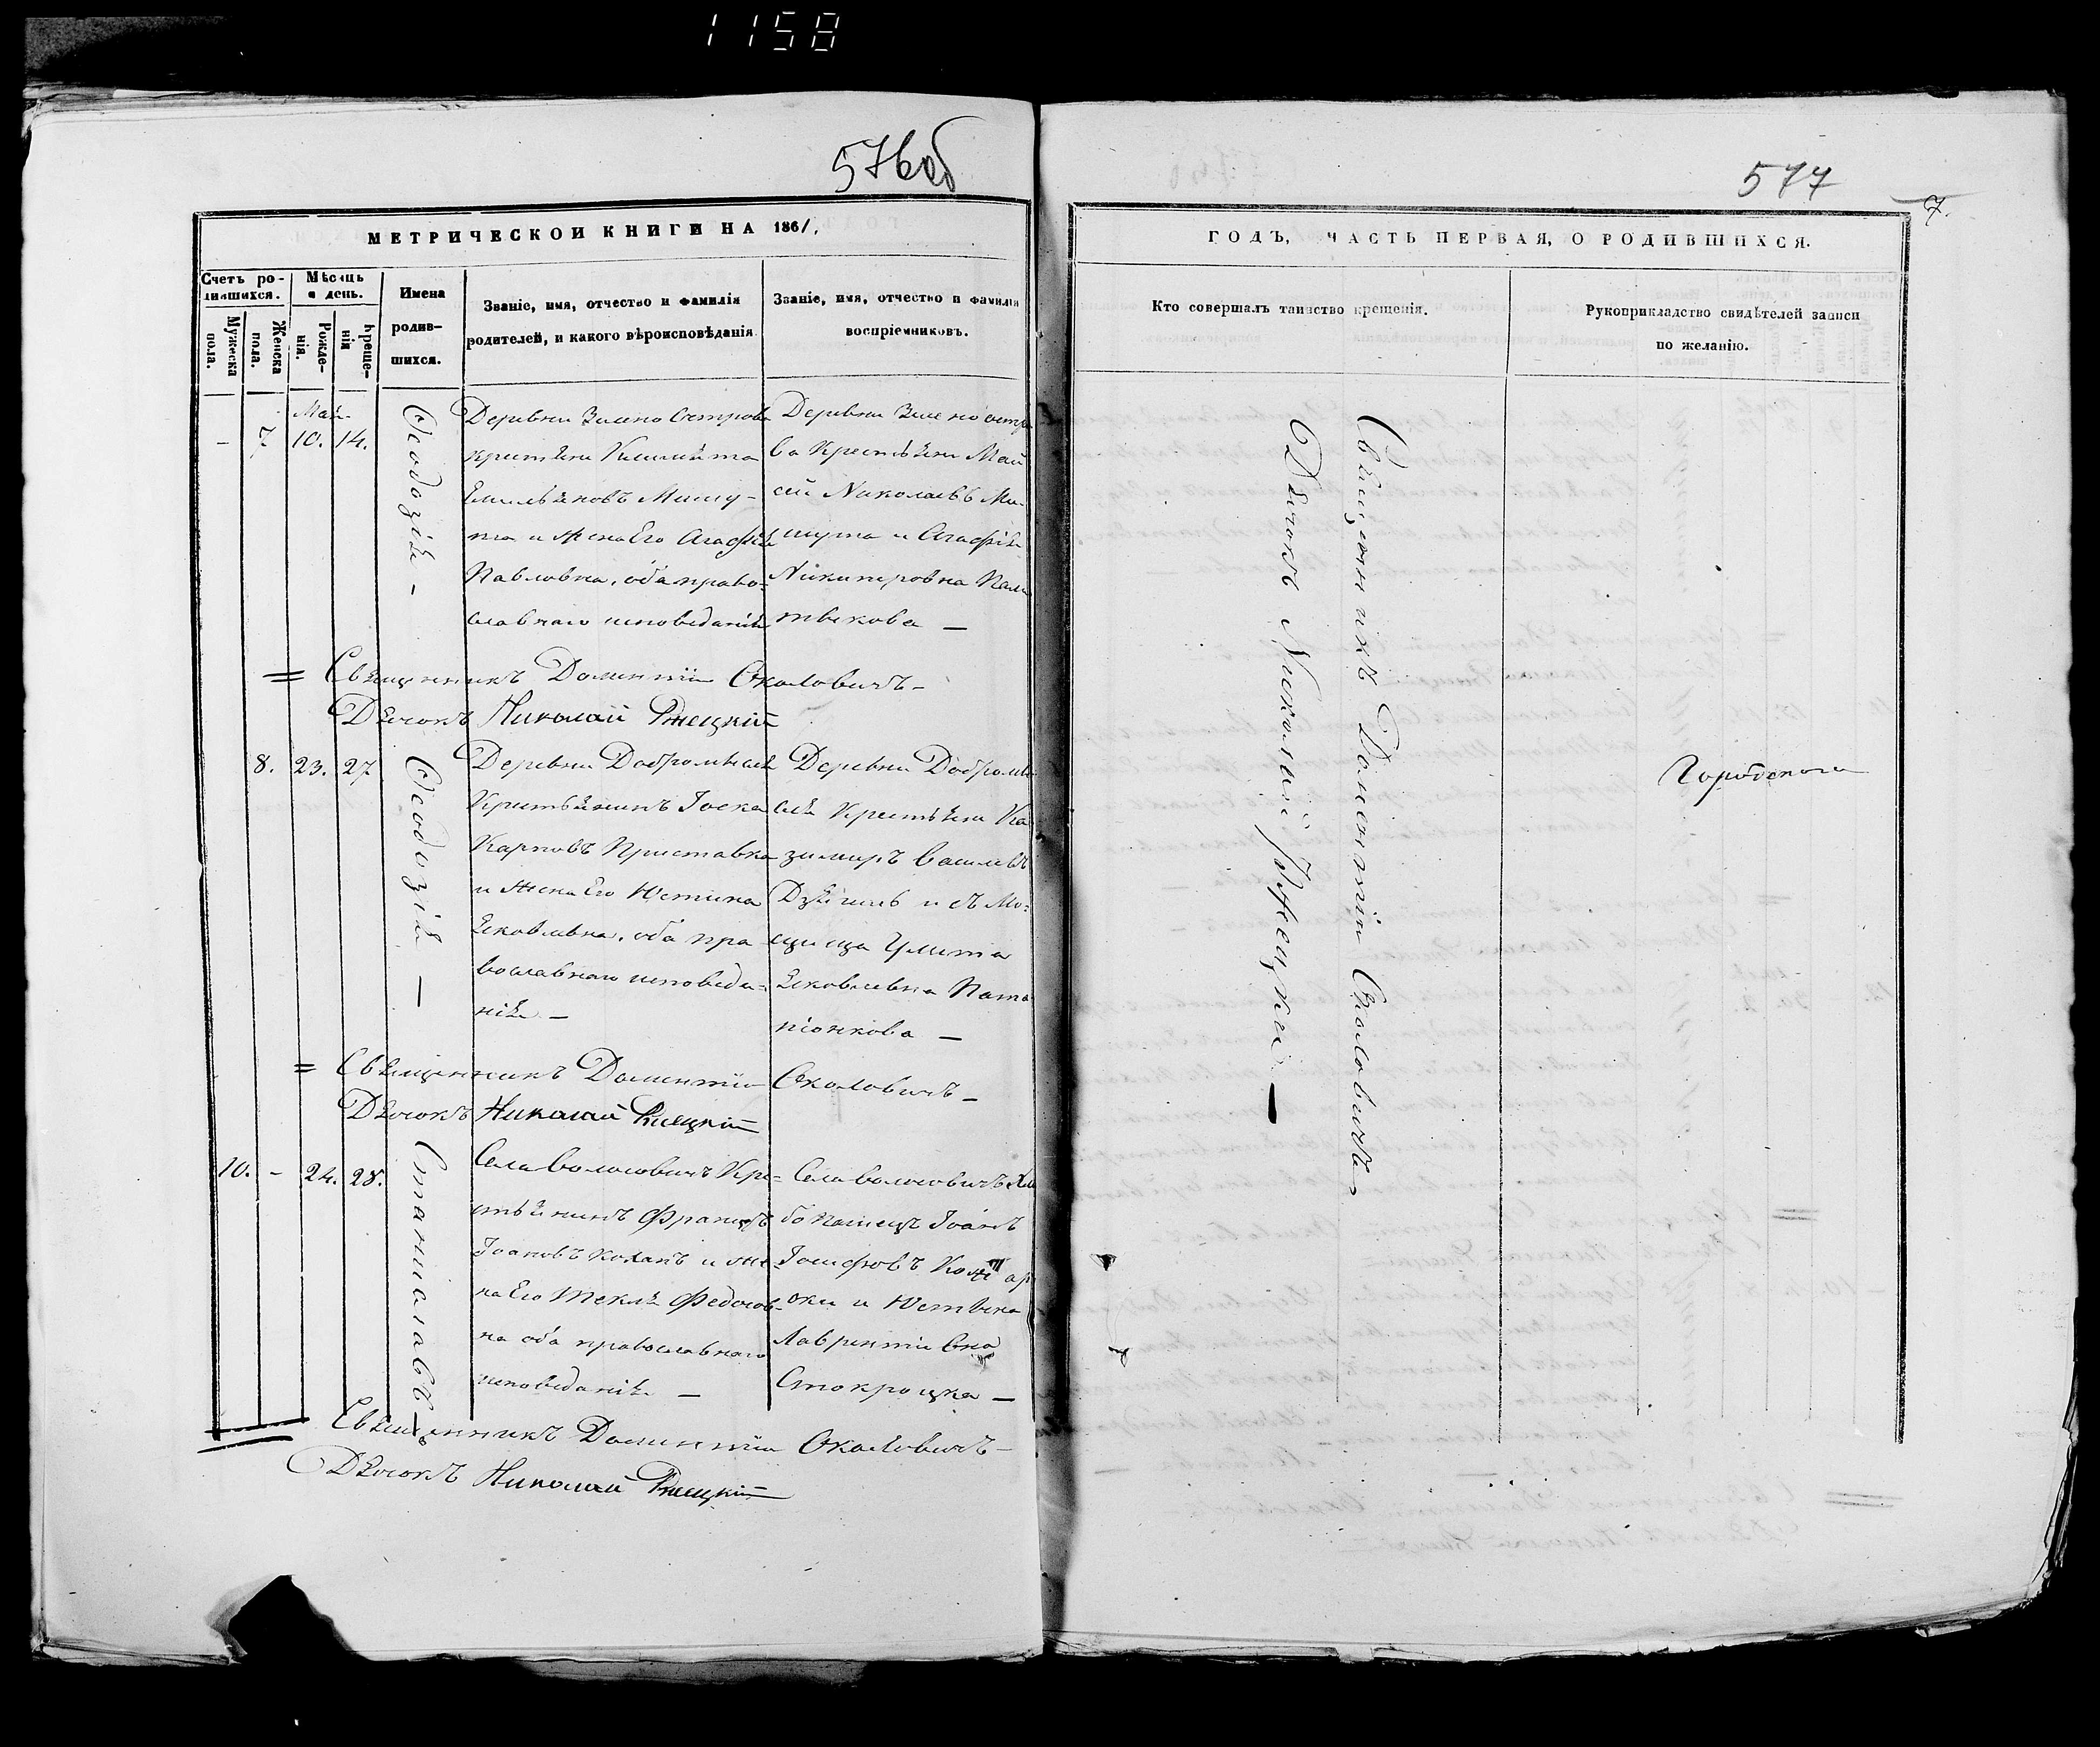 1158
576об
МЕТРИЧЕСКОЙ КНИГИ НА 1861,
Счетъ ро-
дившихся.
Мужеска
пола.
Женска
пола.
Мѣсяцъ
и день.
Рожде-
нія.
Креще-
нія
Имена
родив-
шихся.
Званіе, имя, отчество и фамилія
родителей, и какого вѣроисповѣданія.
Званіе, имя, отчество и фамилія
воспріемниковъ.
Май
- 7. 10. 14.
Ѳеодозія -
Деревни Зелено Острова
Емильяновъ Мишу-
та и Жена Его Агафія
Павловна, оба право-
славнаго исповеданія
Деревни Зелено остро
ва Крестьяни Мои
сей Николаевъ Ми-
шута и Агафія
Никипировна
= Священникъ Доментій Околовичъ -
Дьячокъ Николай Ржецкій
8. 23. 27
Ѳеодозія -
Деревни Добромысля
Крестьянинъ
Карповъ Приставка
и Жена Его Юстина
Яковлевна, оба пра-
вославнаго исповеда-
нія -
Деревни Добромы
сля Крестьяни Ка
зимиръ Василевъ
и съ Мо-
Яковлевна
= Священникъ Доментій Околовичъ -
Дьячокъ Николай Ржецкій
10. - 24. 28.
Станиславъ -
Села Волосовичъ Кре-
стьянинъ Францъ
Іоановъ Коханъ и же-
на Его Текля Федоров-
на оба православнаго
исповеданія -
Села Волосовичъ Хле
бопашецъ Іоанъ
Іосифовъ
и Юстына
Священникъ Доментій Околовичъ -
Дьячокъ Николай Ржецкій
577
7.
ГОДЪ, ЧАСТЬ ПЕРВАЯ, О РОДИВШИХСЯ.
Кто совершалъ таинство крещенія.
Рукоприкладство свидѣтелей записи
по желанію.
Священникъ Доментій Околовичъ -
Дьячокъ Николай Ржецкій -